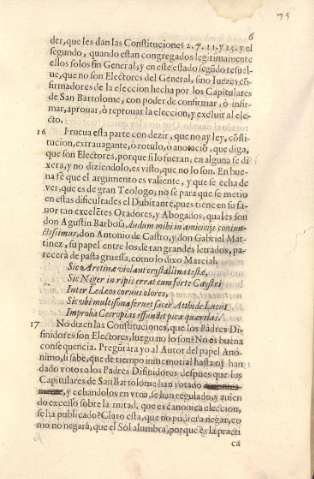 6
75
der, que les dan las Constituciones 2. 7. 11. y 15. y el
segundo, quando estan congregados legitimamente
ellos solos sin General, y en este estado segũdo resuel-
ue, que no son Electores del General, sino Iuezes cõ-
firmadores de la eleccion hecha por los Capitulares
de San Bartolome, con poder de confirmar, ò infir-
mar, aprouar, ò reprouar la eleccion, y excluir al ele-
cto.
16 Prueua esta parte con dezir, que no ay ley, cõsti-
tucion, extrauagante, ò rotulo, ò anotaciõ, que diga,
que son Electores, porque si lo fueran, en alguna se di
xera, y no diziendolo, es visto, que no lo son. En bue-
na fè que el argumento es valiente, y que se echa de
ver, que es de gran Teologo; no sè para que se metio
en estas dificultades el Dubitante, pues tiene en su fa-
uor tan excelẽtes Oradores, y Abogados, quales son
don Agustin Barbosa, Audum mihi in amicitijs coniun-
ctissimus, don Antonio de Castro, y don Gabriel Mar-
tinez, su papel entre los de tan grandes letrados, pa-
recerà de pasta gruessa, como lo dixo Marcial:
Sic Aretinæ violant crystallina testæ,
Sic Niger in ripis errat cum forte Caystri
Inter Ledæos coruus olores,
Sic vbi multisona feruet sacer Atthide lucus
Improba Cecropias offendit pica querelas.
17 No dizen las Constituciones, que los Padres Di-
finidores son Electores, luego no lo son? No es buena
consequencia. Preguntara yo al Autor del papel Ano-
nimo, si sabe, que de tiempo inmemorial hasta oy han
dado votos los Padres Difinidores despues que los
Capitulares de San Bartolome han votado
y, echandolos en vno, se han regulado, y auien
do excesso sobre la mitad, que es canonica eleccion,
se ha publicado? Claro esta, que no puede negar, co-
mo no negarà, que el Sol alumbra, porque es la practi
ca